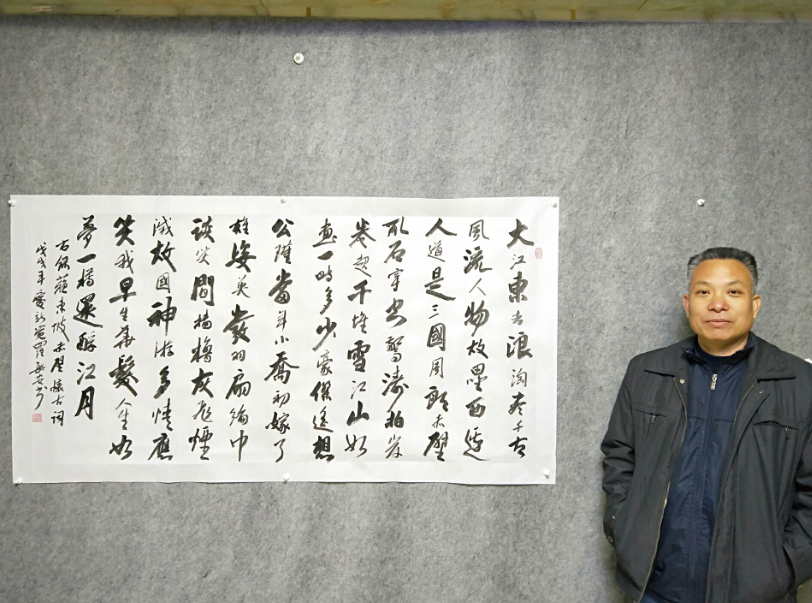 大江東去浪淘尽千古
風流人物故壘西邊
人道是三國周郎赤壁
乱石穿空驚濤拍岸
卷起千堆雪江山如
画一時多少豪傑遥想
公瑾當年小喬初嫁了
雄姿英發羽扇綸巾
談笑間檣櫓灰飛煙
滅故國神游多情應
笑我早生華髮人生如
夢一樽還酹江月
右録蘇東坡赤壁懷古词
戊戌年